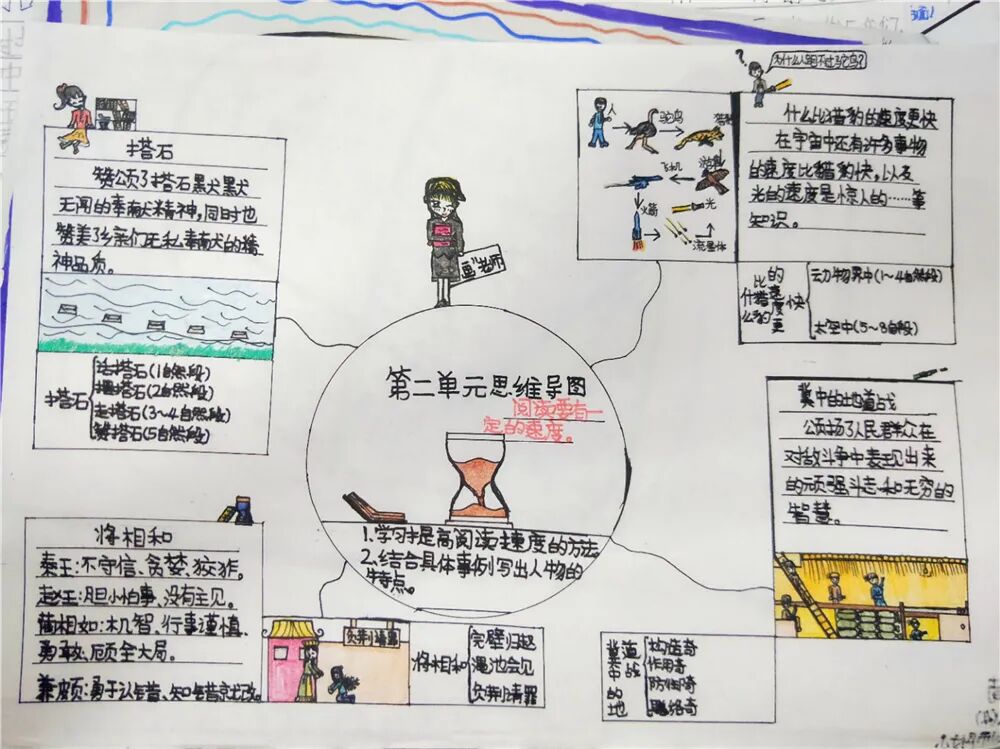 搭石
赞颂了搭石默默
无闻的奉献精神,同时也
赞美了乡亲们无私奉献的精
神品质。
搭石
话搭石(1自然段)
摆搭石(2自然段)
走搭石(3~4自然段)
赞搭石(5自然段)
将相和
秦王:不守信、贪婪、狡诈。
赵王:胆小怕事、没有主见。
蔺相如:机智、行事谨慎、
勇敢、顾全大局。
廉颇:勇于认错、知错就改。
负荆请罪
将相和
完璧归赵
渑池会见
负荆请罪
"画"老师
第二单元思维导图
阅读要有一
定的速度。
1.学习提高阅读速度的方法
2.结合具体事例写出人物的
特点。
为什么人跑不过鸵鸟?
人
鸵鸟
猎豹
游隼
飞机
火箭
光
流星体
什么比猎豹的速度更快
在宇宙中还有许多事物
的速度比猎豹快,以及
光的速度是惊人的……等
知识。
什么比猎豹的速度更快
动物界中(1~4自然段)
太空中(5~8自段)
冀中的地道战
颂扬了人民群众在
对敌斗争中表现出来
的顽强斗志和无穷的
智慧。
冀中的地道战
构造奇
作用奇
防御奇
联络奇